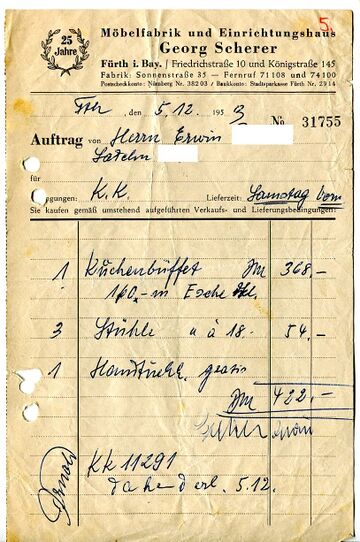 5.
25 Jahre
Möbelfabrik und Einrichtungshaus
Georg Scherer
Fürth i. Bay. / Friedrichstraße 10 und Königstraße 145
Fabrik: Sonnenstraße 35 — Fernruf 71108 und 74100
Postscheckkonto: Nürnberg Nr. 38203 / Bankkonto: Stadtsparkasse Fürth Nr. 2914
Fth , den 5.12. 1959
№ 31755
Auftrag von Herrn Erwin
für
gungen: K.K. Lieferzeit: Samstag vorm
Sie kaufen gemäß umstehend aufgeführten Verkaufs- und Lieferungsbedingungen:
1 Küchenbüffet DM 368.-
160.-m Esche
3 Stühle " à 18.- 54.-
1 Handtuchh. gratis
DM 422.-
KK 11291
5.12.